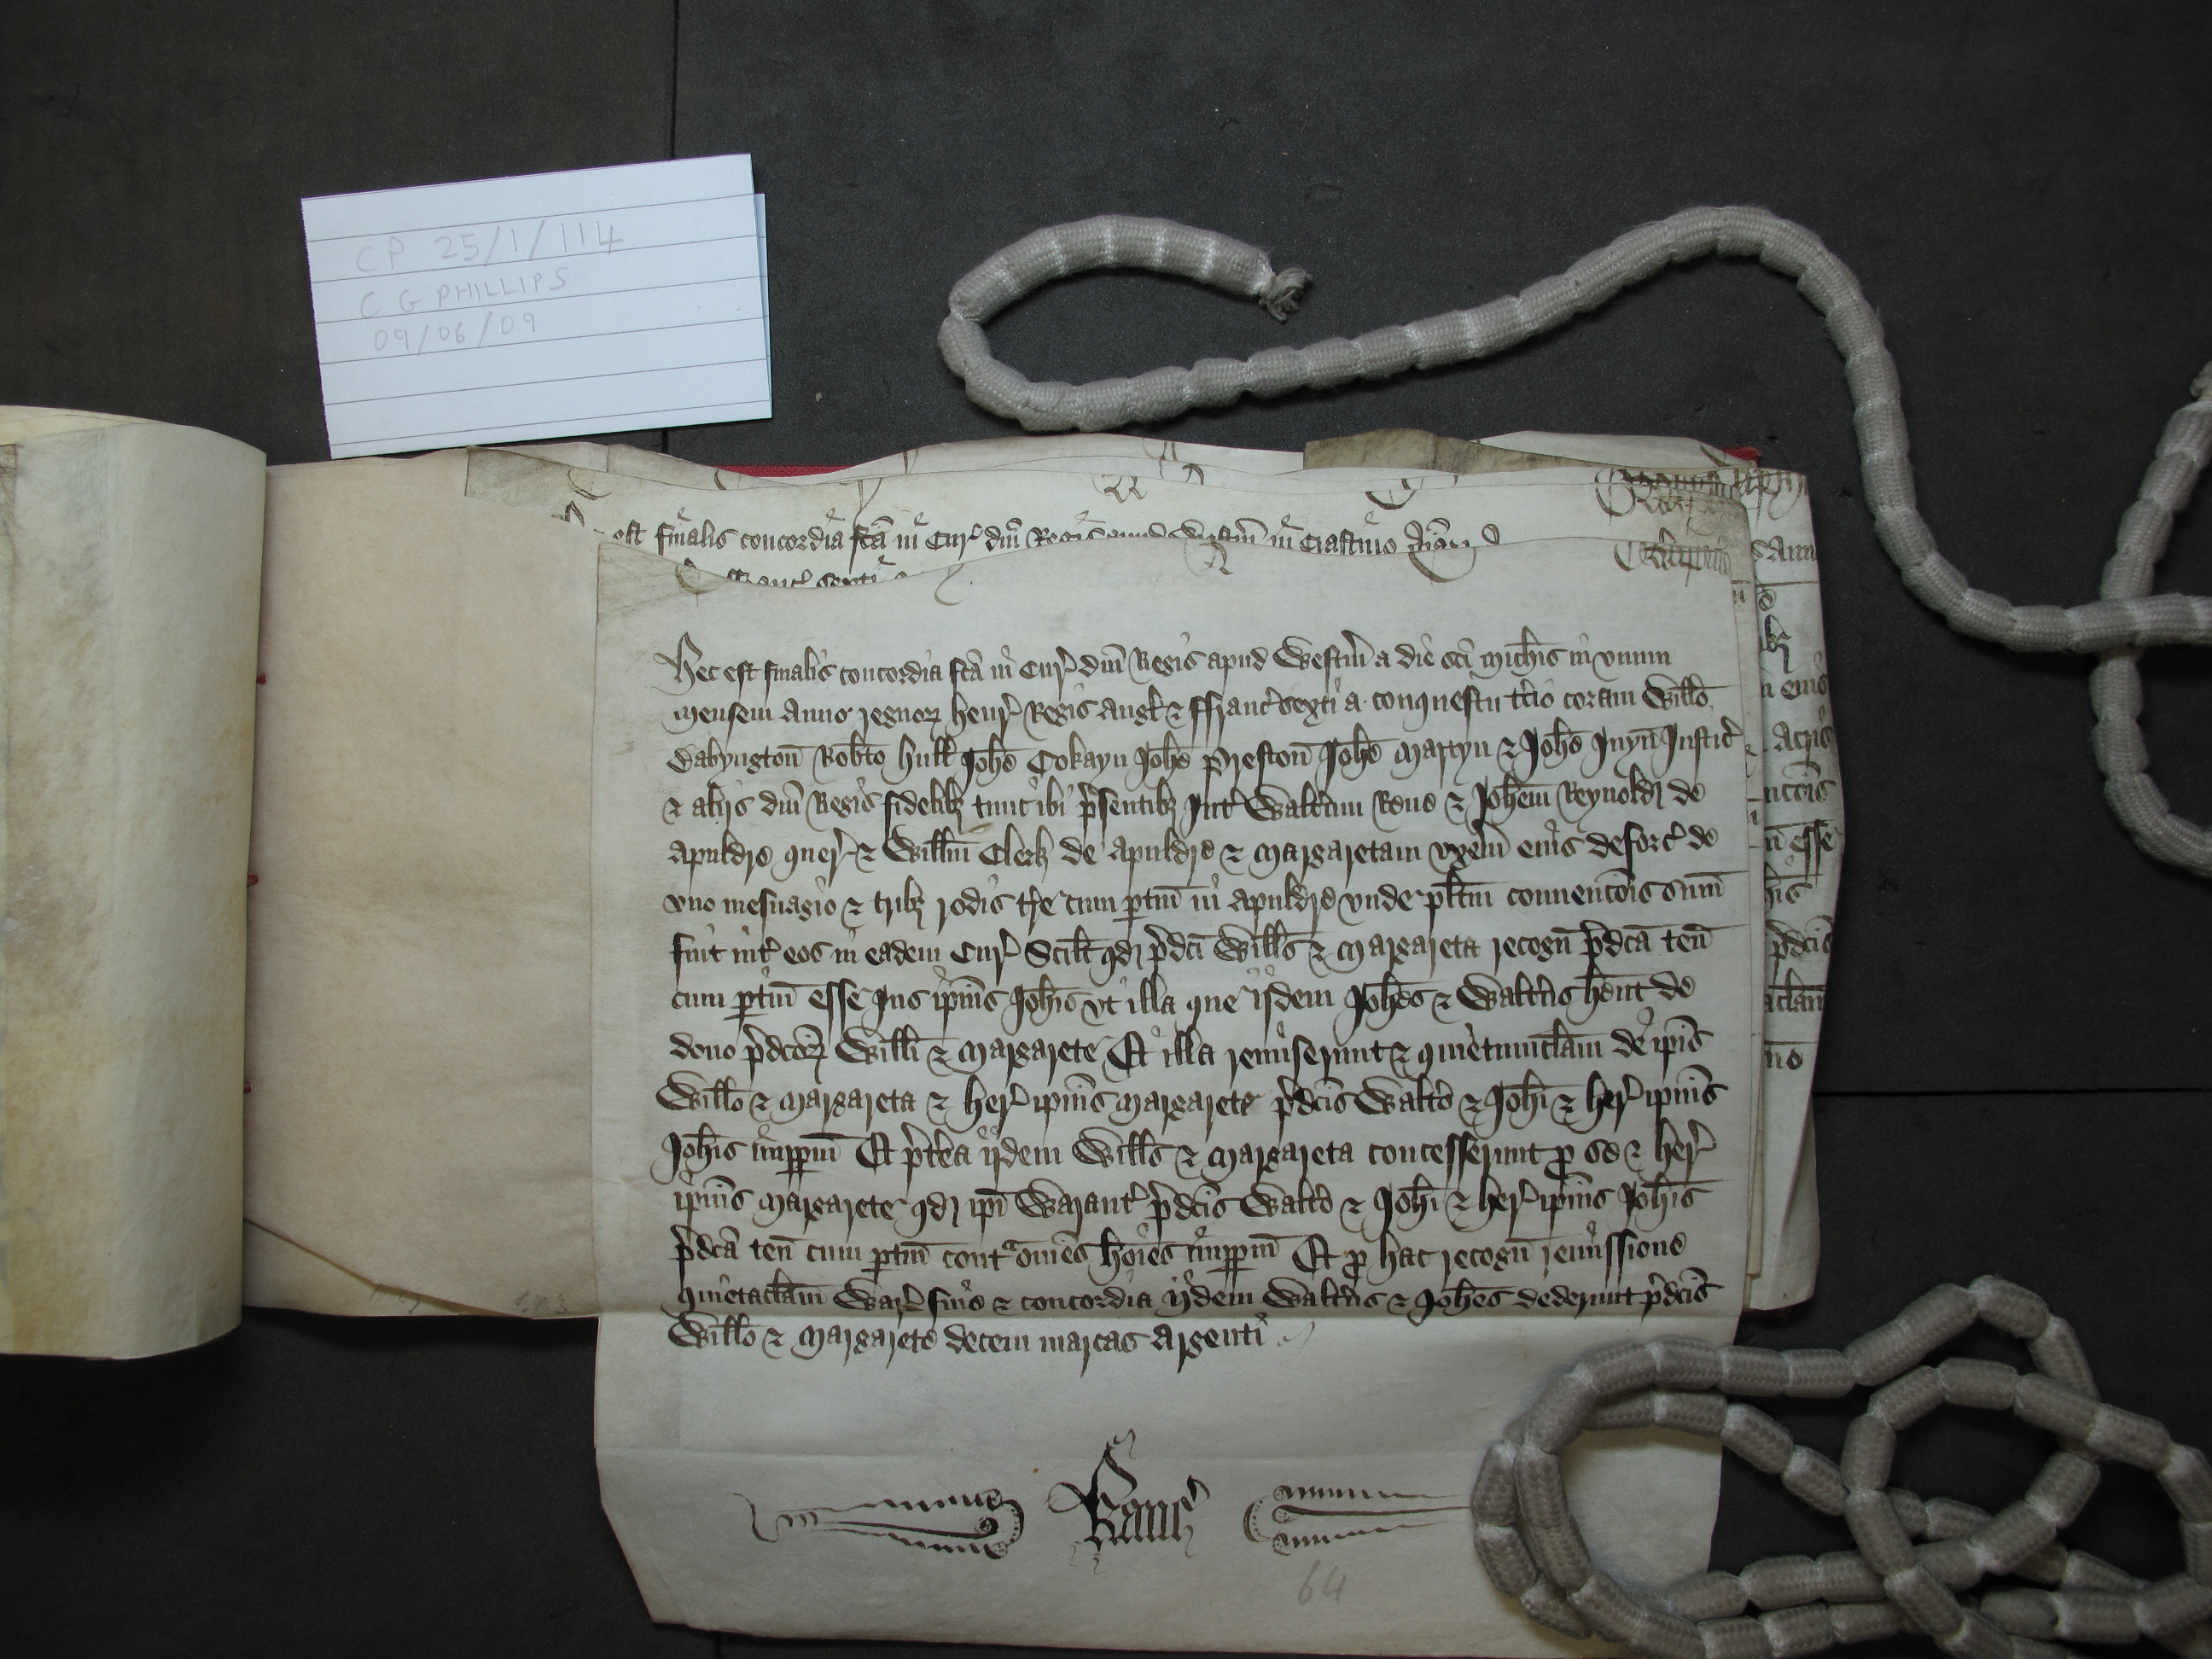 CP 25/1/114
C G PHILLIPS
09/06/09
est finalis concordia fcā in Cur' dm̄ Regis apud Westm̄ in Crastino
Hec est finalis concordia fcā in Cur' dn̄i Regis apud Westm̄ a die sc̄i Mich̄is in vnum
mensem Anno regnoꝝ Henr' Regis Angł & Ffranc' sexti a conquestu t'cio coram Willo
Babyngton̄ Rob̄to Hull Joh̄e Cokayn Joh̄e Preston̄ Joh̄e Martyn & Joh̄e Juyn̄ Justic'
& alijs dn̄i Regis fidelibȝ tunc ibi p'sentibȝ Int' Walt'um Rone & Joh̄em Reynoldȝ de
Apuldre quer' & Willm̄ Clerk de Apuldre & Margaretam vxem̄ eius deforc' de
vno mesuagio & tribȝ rodis t're cum ptin̄ in Apuldre vnde pl̄itm̄ conuenc̄ois sum̄
fuit int' eos in eadem Cur' Scil̄t qđ p'dc̄i Wills & Margareta recogn̄ p'dc̄a ten̄
cum ptin̄ esse Jus ip̄ius Joh̄is vt illa que ijdem Joh̄es & Walt'us h̄ent de
dono p'dc̄oꝝ Willi & Margarete Et illa remiserunt & quietumclam̄ de ip̄is
Willo & Margareta & her' ip̄ius Margarete p'dc̄is Walt'o & Joh̄i & her' ip̄ius
Joh̄is imppm̄ Et p't'ea ijdem Wills & Margareta concesserunt p se & her'
ip̄ius Margarete qđ ip̄i Warant' p'dc̄is Walt'o & Joh̄i & her' ip̄ius Joh̄is
p'dc̄a ten̄ cum ptin̄ contᵃ om̄es ho̅i̅es imppm̄ Et p hac recogn̄ remissione
quietaclam̄ War' fine & concordia ijdem Walt'us & Joh̄es dederunt p'dc̄is
Willo & Margarete decem marcas argenti
Kanc'
64